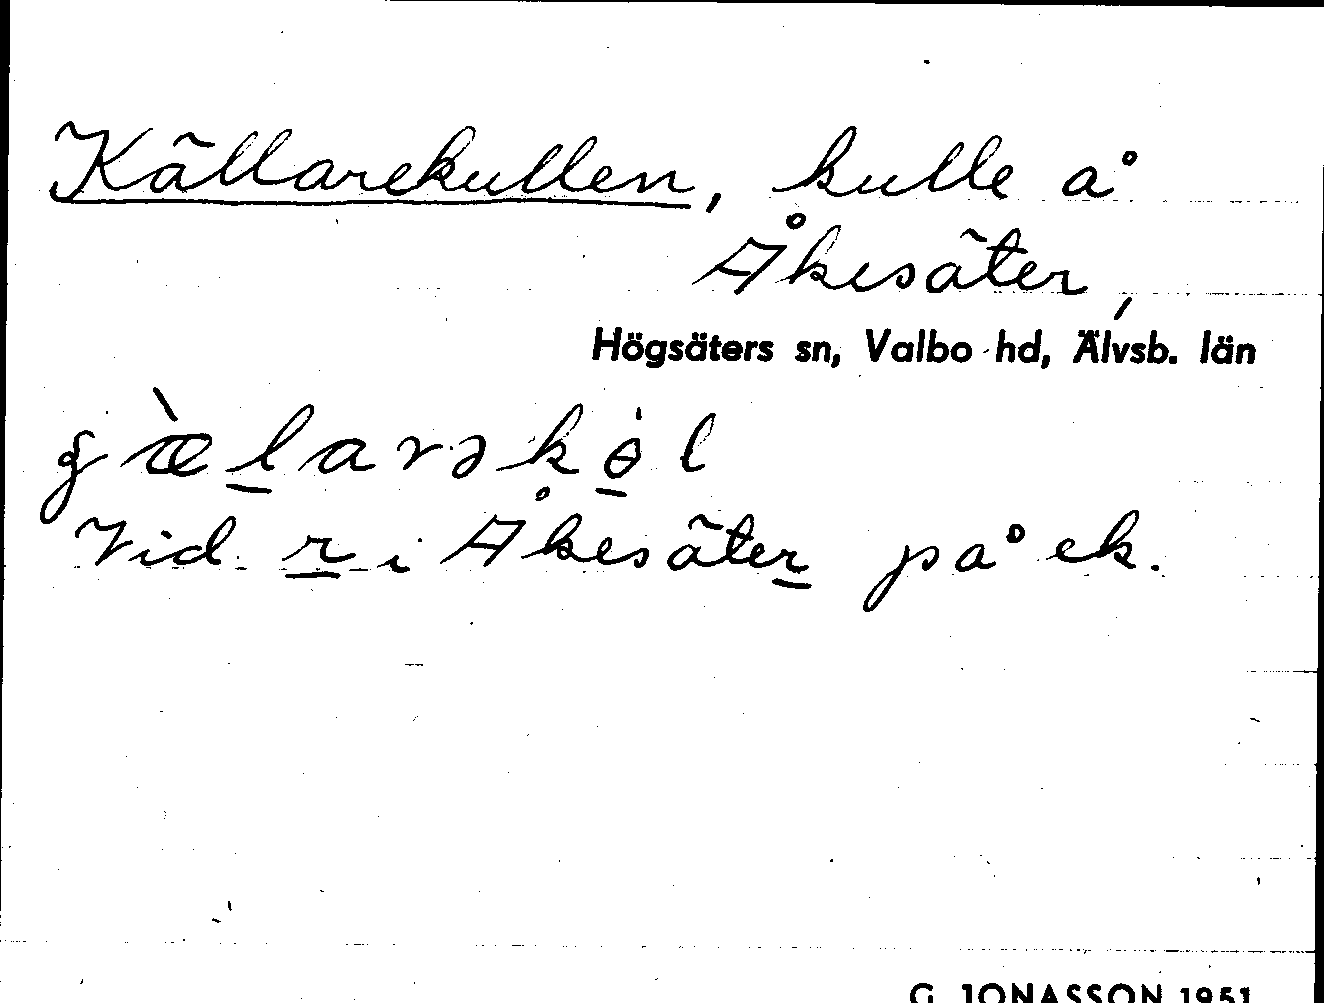 Källarekullen, kulle å
Åkesäter,
Högsäters sn, Valbo hd, Älvsb. län
Vid r i Åkesäter på ek.
G. JONASSON 1951